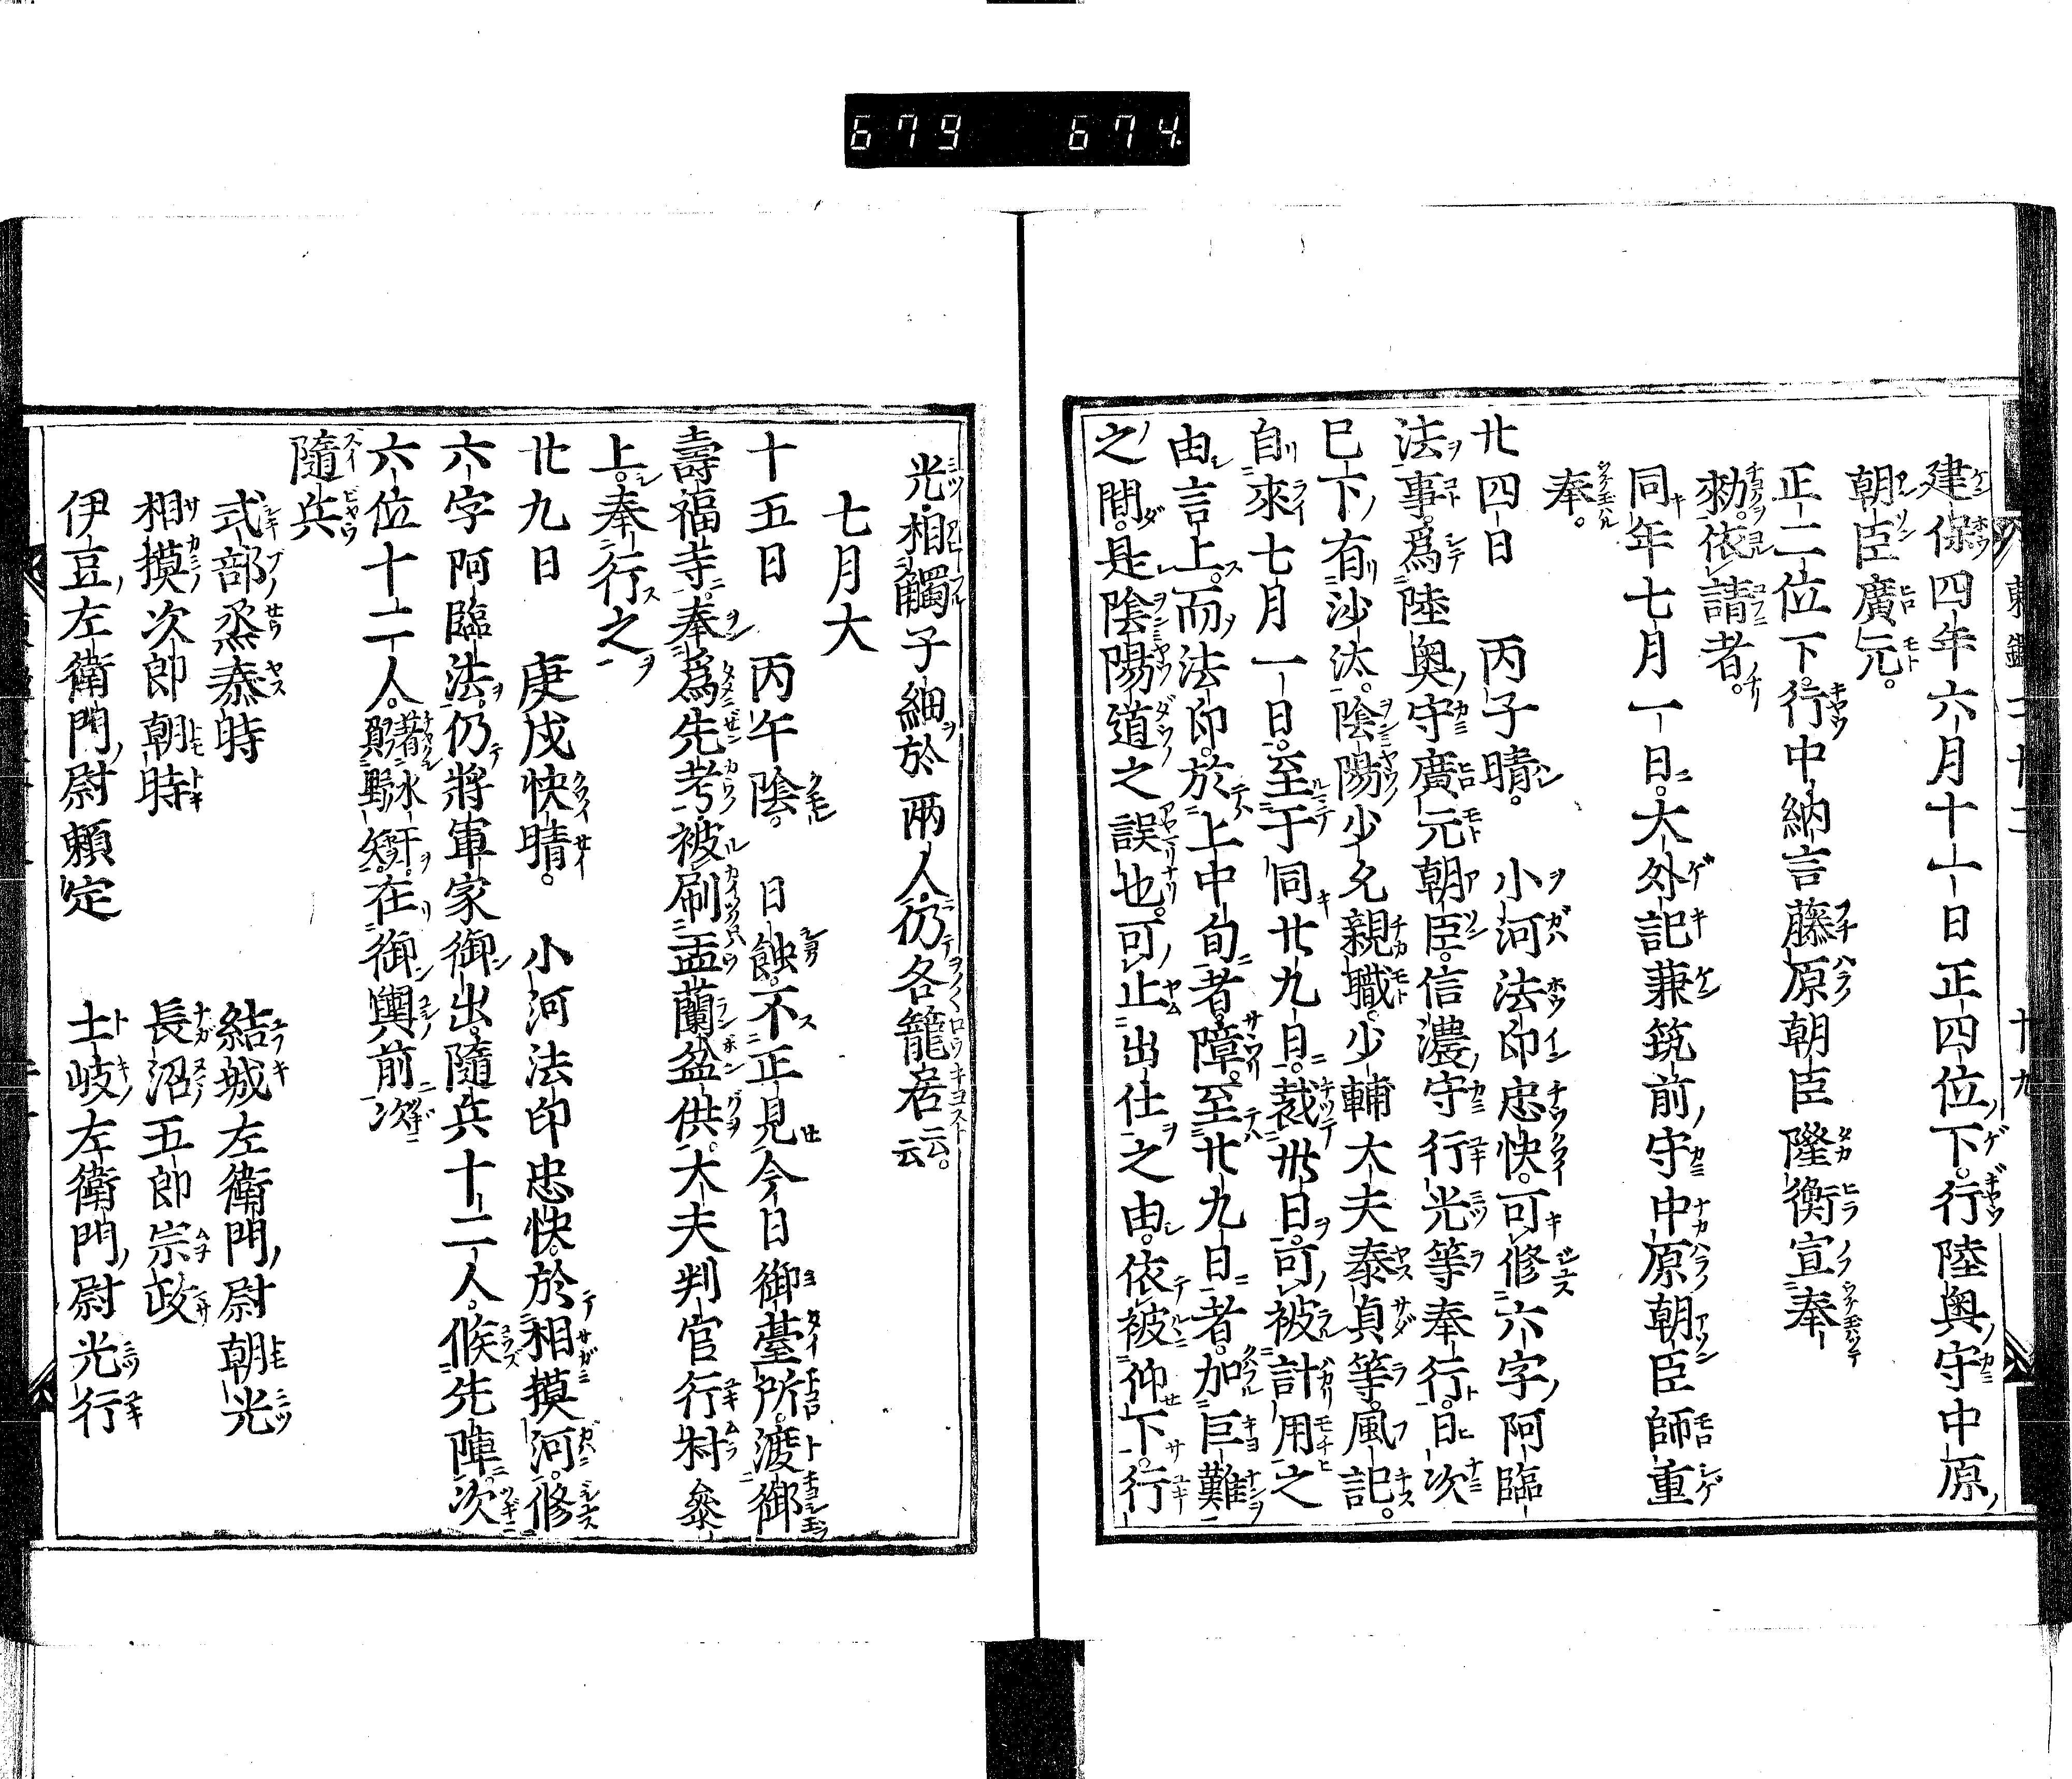 679 674
建保四年六月十一日正四位下。行陸奥守中原
朝臣廣元。
正二位下。行中納言藤原朝臣隆衡宣奉
勑。依請者。
同年七月一日。大外記兼筑前守中原朝臣師重
奉。
廿四日 丙子晴。 小河法印忠快。可修六字阿臨
法事。爲陸奥守廣元朝臣。信濃守行光等奉行。日次
巳下有沙汰。陰陽少允親職。少輔大夫泰貞等。風記。
自來七月一日。至于同廿九日。裁卅日。可被計用之
由言上。而法印。於上中旬者。障。至廿九日者。加巨難
之間。是陰陽道之誤也。可止出仕之由。依被仰下。行
光相觸子細於兩人。仍各籠居云云。
七月大
十五日 丙午陰。 日蝕。不正見今日御臺所。渡御
壽福寺。奉爲先考。被刷盂蘭盆供。大夫判官行村參
上。奉行之
廿九日 庚戌快晴。 小河法印忠快。於相摸河。修
六字阿臨法。仍將軍家御出。隨兵十二人。候先陣。次
六位十二人。著水干。負野矢。在御輿前次
隨兵
式部烝泰時 結城左衛門尉朝光
相摸次郎朝時 長沼五郎宗政
伊豆左衛門尉頼定 土岐左衛門尉光行